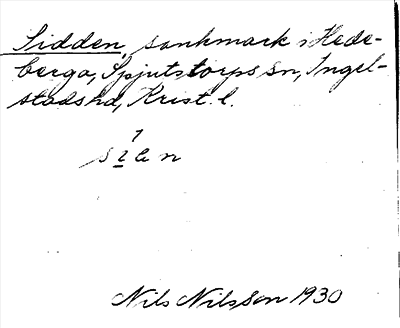 Sidden, sankmark i Hede-
berga, Spjutstorps sn, Ingel-
stads hd, Krist. l.
Nils Nilsson 1930